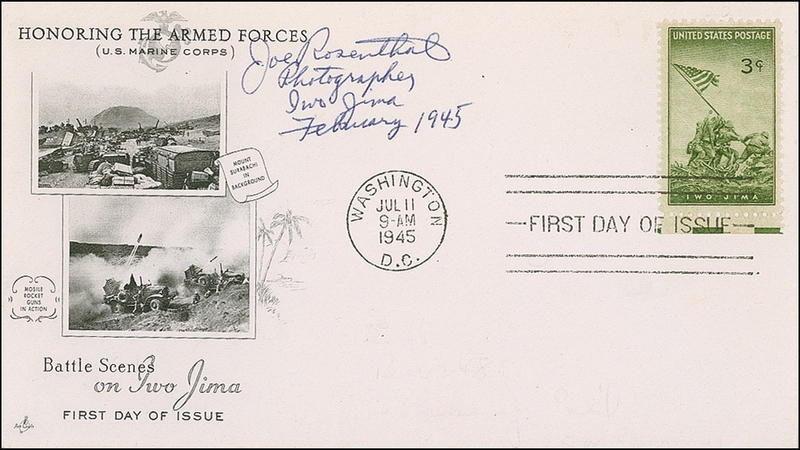 HONORING THE ARMED FORCES
(U.S. MARINE CORPS)
Joe Rosenthal
Photographer
Iwo Jima
February 1945
UNITED STATES POSTAGE
3¢
IWO JIMA
MOUNT
SURABACHI
IN
BACKGROUND
WASHINGTON
JUL 11
9-AM
1945
D.C.
FIRST DAY OF ISSUE
MOBILE
ROCKET
GUNS
IN ACTION
Battle Scenes
on Iwo Jima
FIRST DAY OF ISSUE